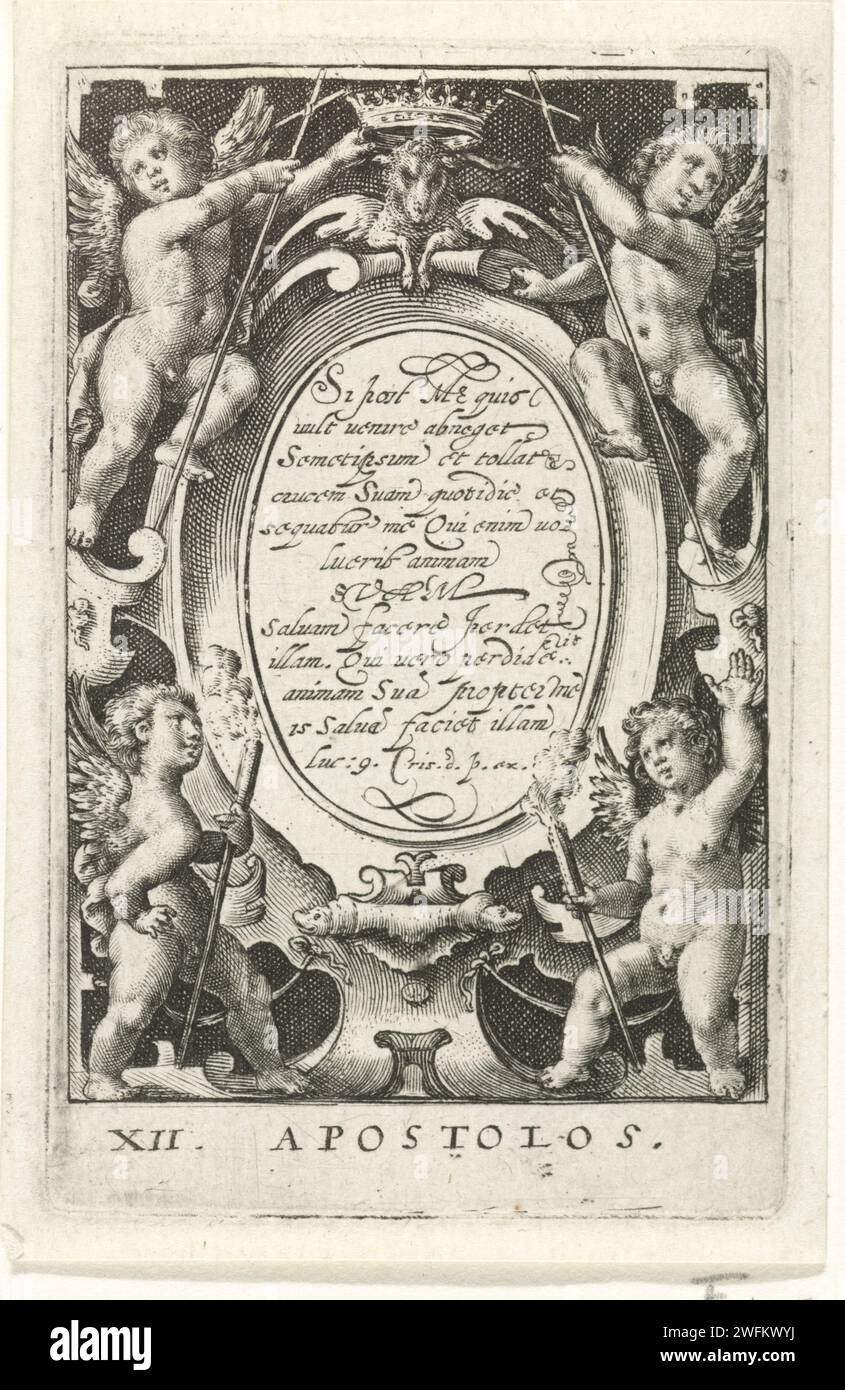 Si post Me quis
vult venire abneget
Semetipsum et tollat
crucem Suam quotidie et
sequatur me Qui enim vo
luerit animam
SVAM
Salvam facere perdet
illam. Qui vero perdide..
animam Suā propter me
is Salvā faciet illam
Luc: 9. Cris. d. p. ex.
XII. APOSTOLOS.
alamy
Image ID: 2WFKWYJ
www.alamy.com